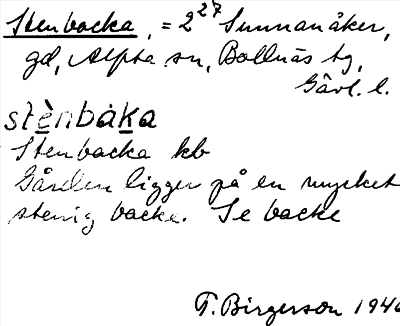 Stenbacka, = 2²⁷ Sunnanåker,
gd, Alpha sn, Bollnäs tg,
Gävl. l.
stènbáka
Stenbacka kb
Gården ligger på en mycket
stenig backe. Se backe
T. Birgerson 1946